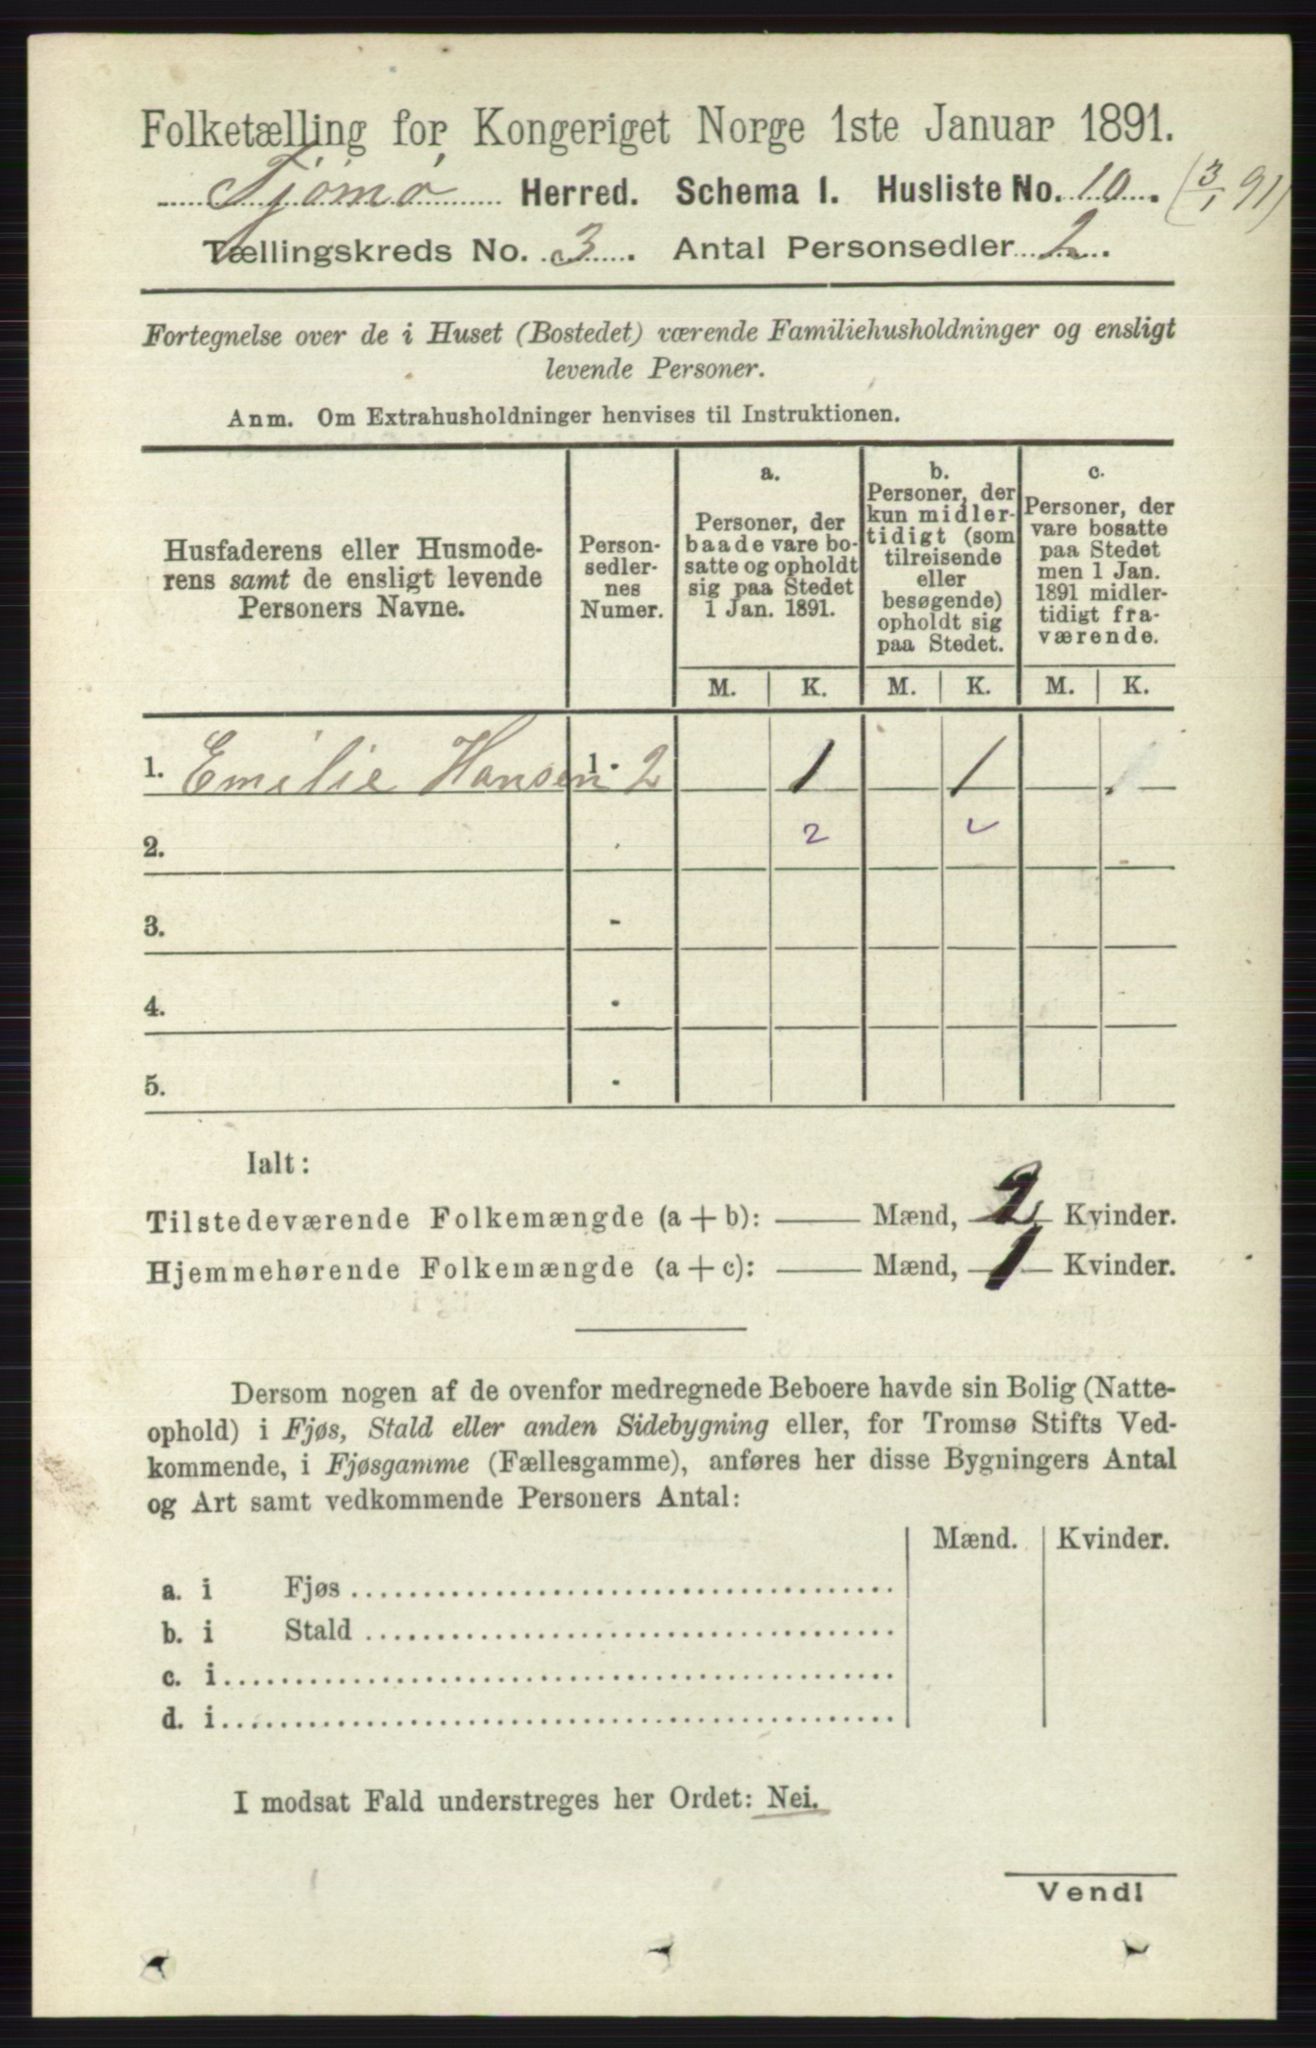 Folketælling for Kongeriget Norge 1ste Januar 1891.
Tjømø Herred. Schema 1. Husliste No. 10. (3/1 91)
Tællingskreds No. 3. Antal Personsedler 2.
Fortegnelse over de i Huset (Bostedet) værende Familiehusholdninger og ensligt
levende Personer.
Anm. Om Extrahusholdninger henvises til Instruktionen.
Husfaderens eller Husmode-
rens samt de ensligt levende
Personers Navne.
Person-
sedler-
nes
Numer.
a.
Personer, der
baade vare bo-
satte og opholdt
sig paa Stedet
1 Jan. 1891.
b.
Personer, der
kun midler-
tidigt (som
tilreisende
eller
besøgende)
opholdt sig
paa Stedet.
c.
Personer, der
vare bosatte
paa Stedet
men 1 Jan.
1891 midler-
tidigt fra-
værende.
M. K. M. K. M. K.
1. Emilie Hansen 1 - 2 1 1
2. 2 ✓
3. -
4. -
5. -
Ialt:
Tilstedeværende Folkemængde (a + b): — Mænd, 2 Kvinder.
Hjemmehørende Folkemængde (a + c): — Mænd, 1 Kvinder.
Dersom nogen af de ovenfor medregnede Beboere havde sin Bolig (Natte-
ophold) i Fjøs, Stald eller anden Sidebygning eller, for Tromsø Stifts Ved-
kommende, i Fjøsgamme (Fællesgamme), anføres her disse Bygningers Antal
og Art samt vedkommende Personers Antal:
Mænd. Kvinder.
a. i Fjøs
b. i Stald
c. i
d. i
I modsat Fald understreges her Ordet: Nei.
Vend!